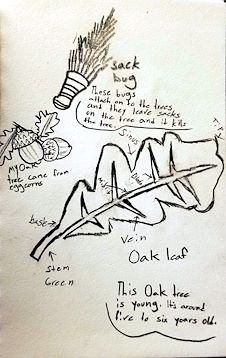 sack
bug
These bugs
attach on to the trees
and they leave sacks
on the tree and it kills
the tree.
My Oak
tree came from
eggcorns
Sinus
Tip
base
Vein
Stem
Green
Oak leaf
This Oak tree
is young. It's around
five to six years old.